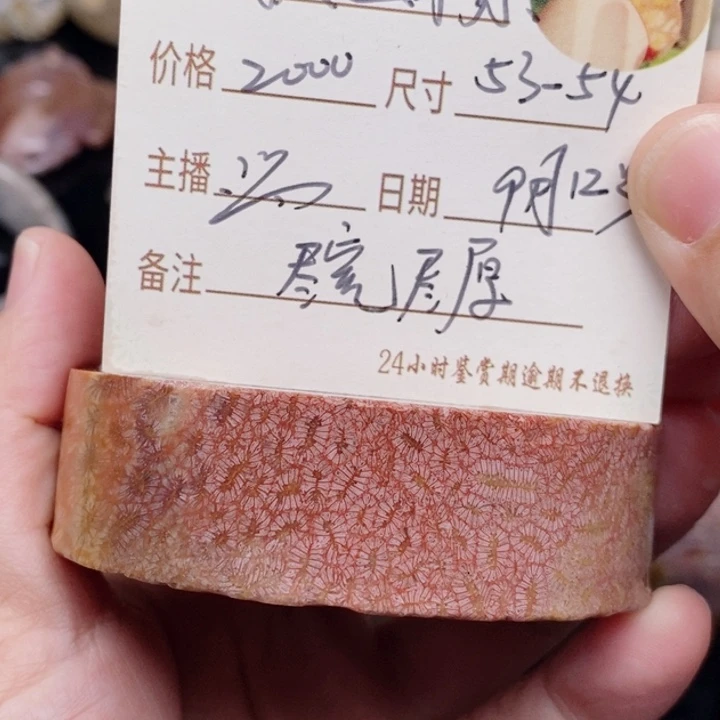 价格 2000 尺寸 53-54
主播 日期 9月12号
备注 尽宽尽厚
24小时鉴赏期逾期不退换